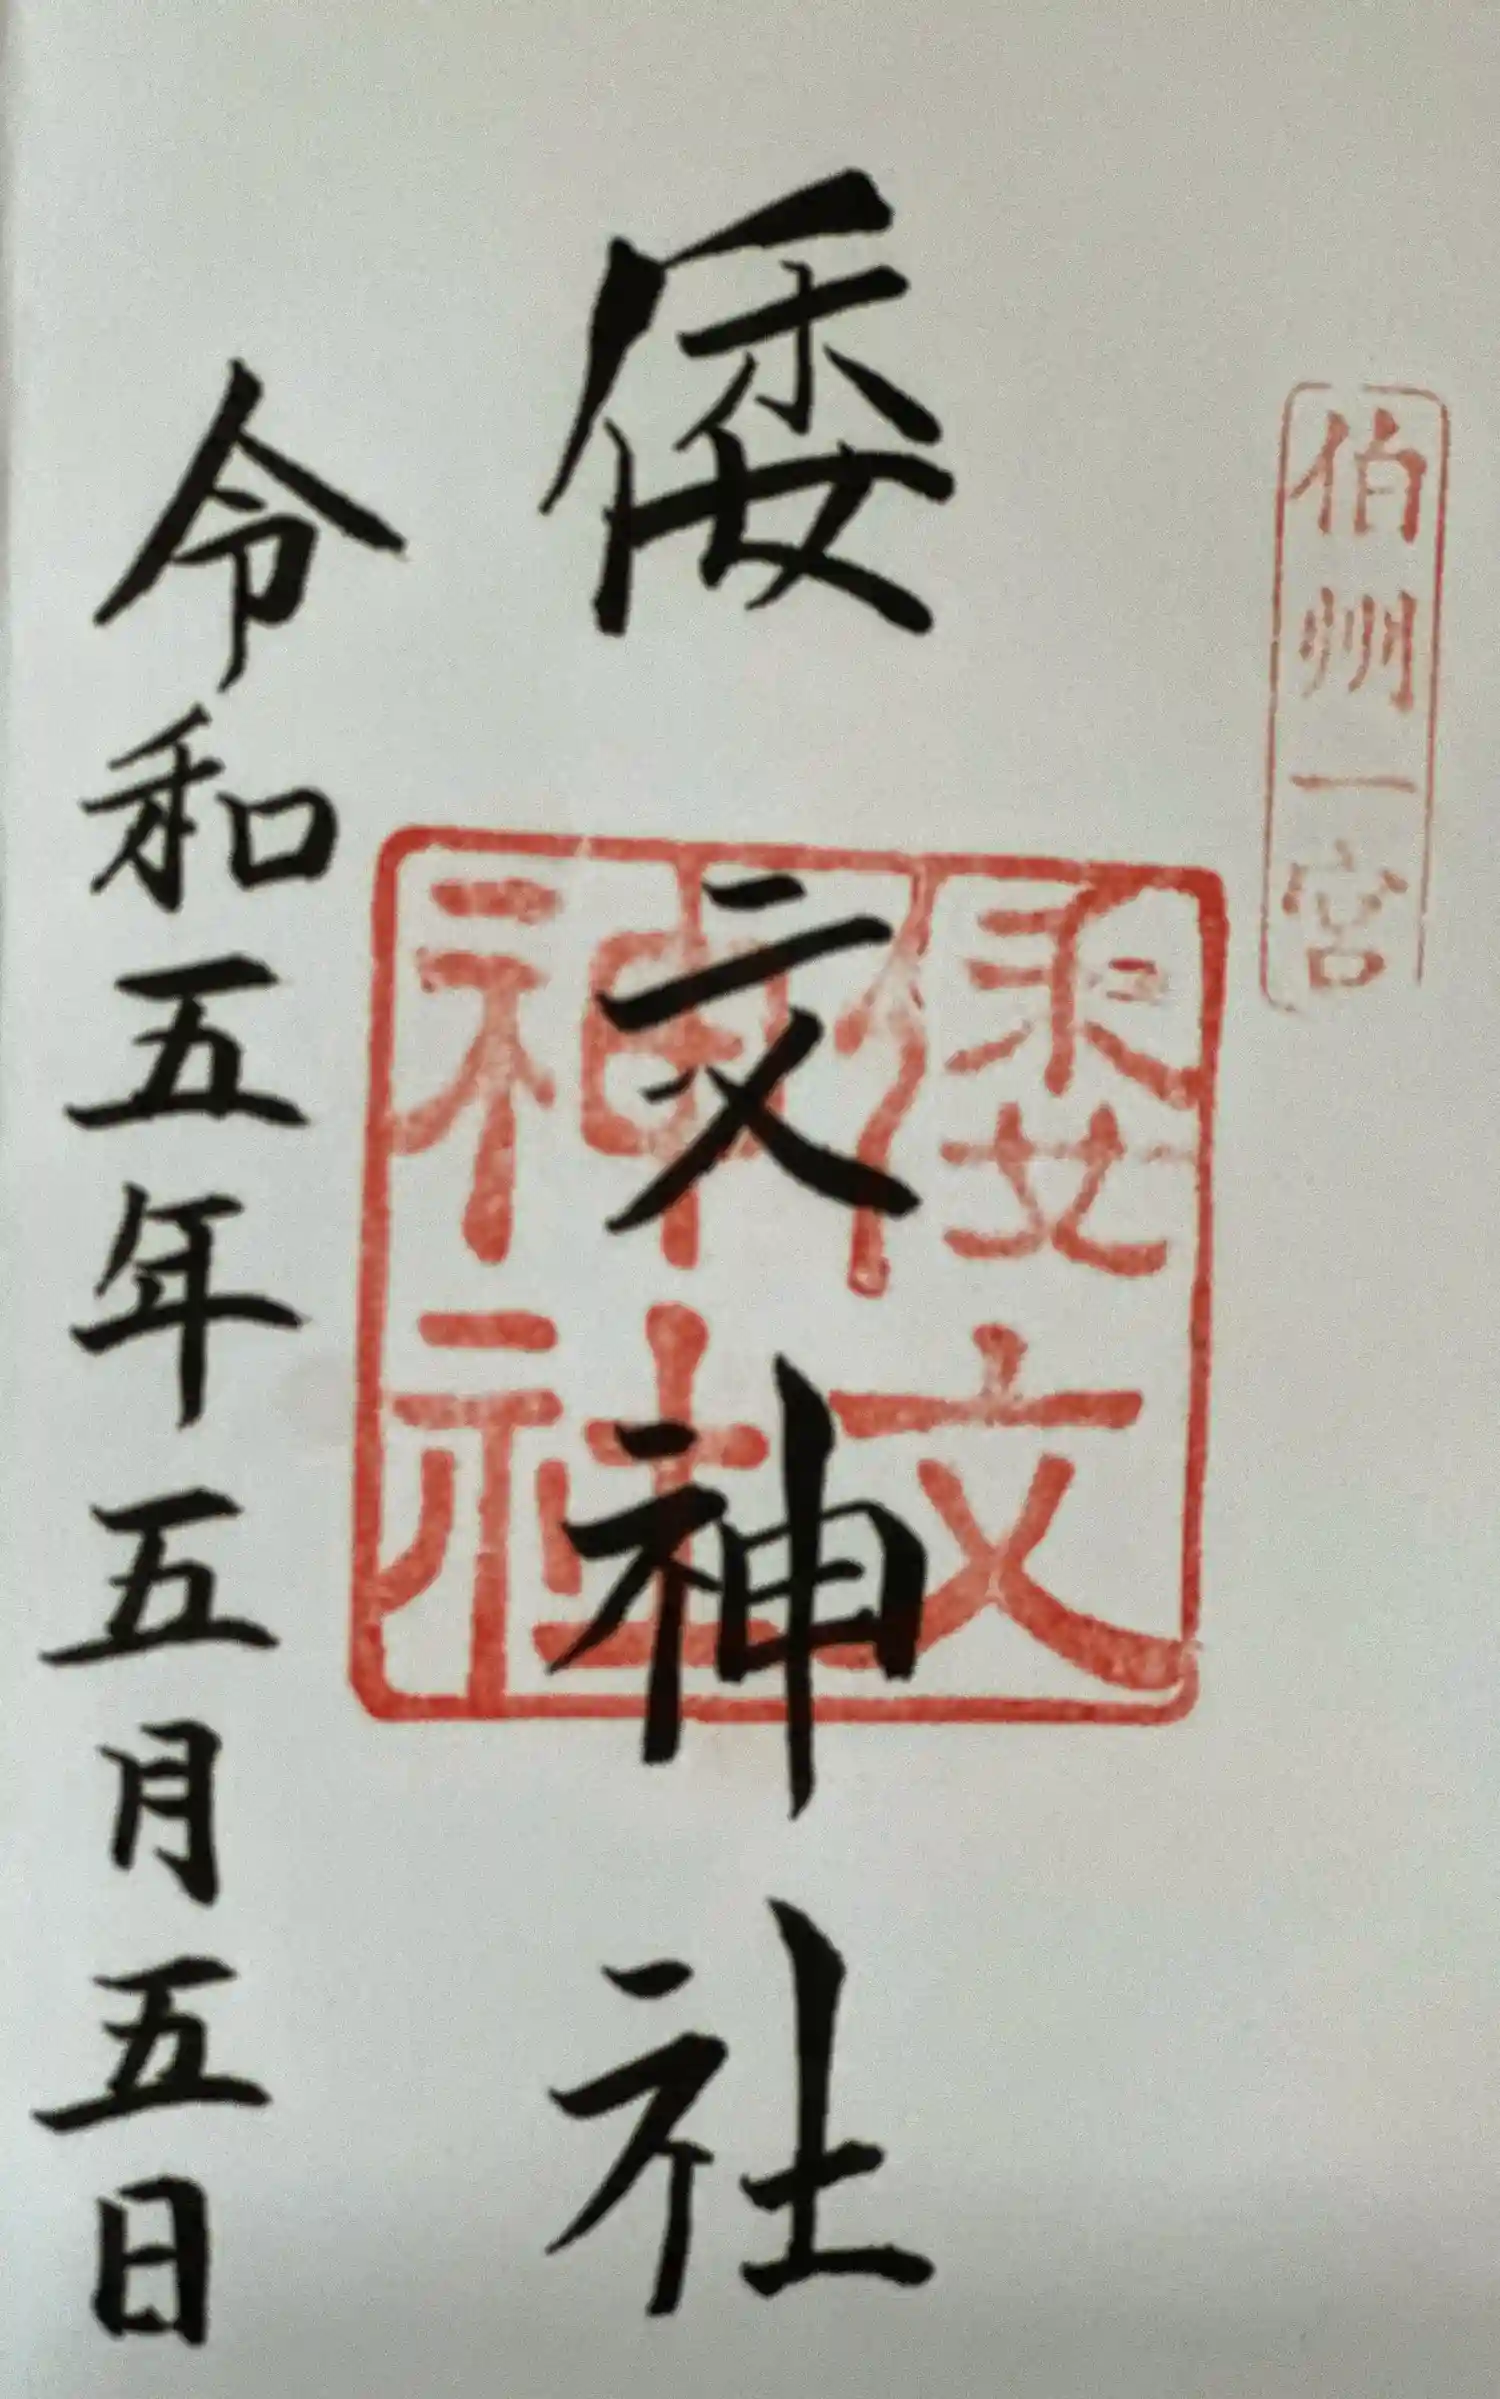 伯州一宮
倭文神社
倭文
神社
令和五年五月五日